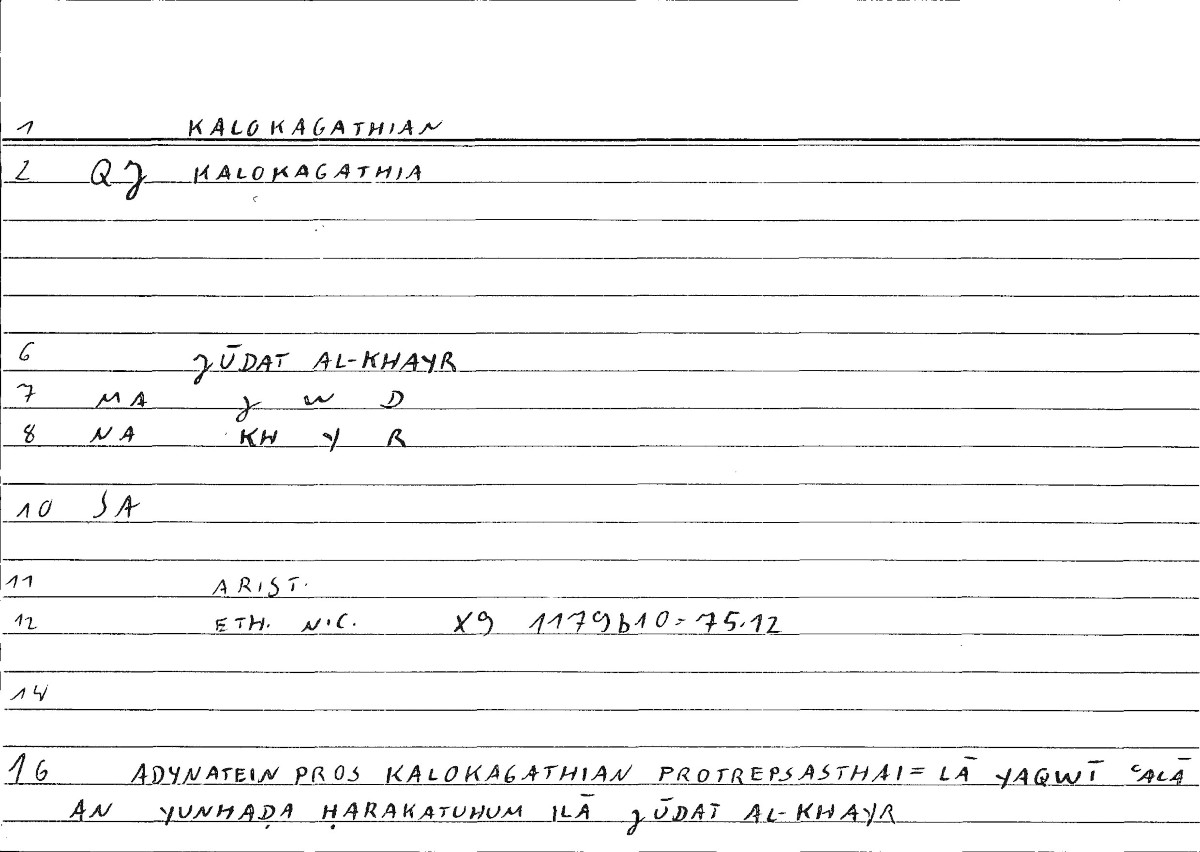 1 KALOKAGATHIAN
2 QJ KALOKAGATHIA
6 JŪDAT AL-KHAYR
7 MA J W D
8 NA KH Y R
10 SA
11 ARIST.
12 ETH. NIC. X9 1179b10=75.12
14
16 ADYNATEIN PROS KALOKAGATHIAN PROTREPSASTHAI = LĀ YAQWĪ ʿALĀ
AN YUNHAḌA ḤARAKATUHUM ILĀ JŪDAT AL-KHAYR